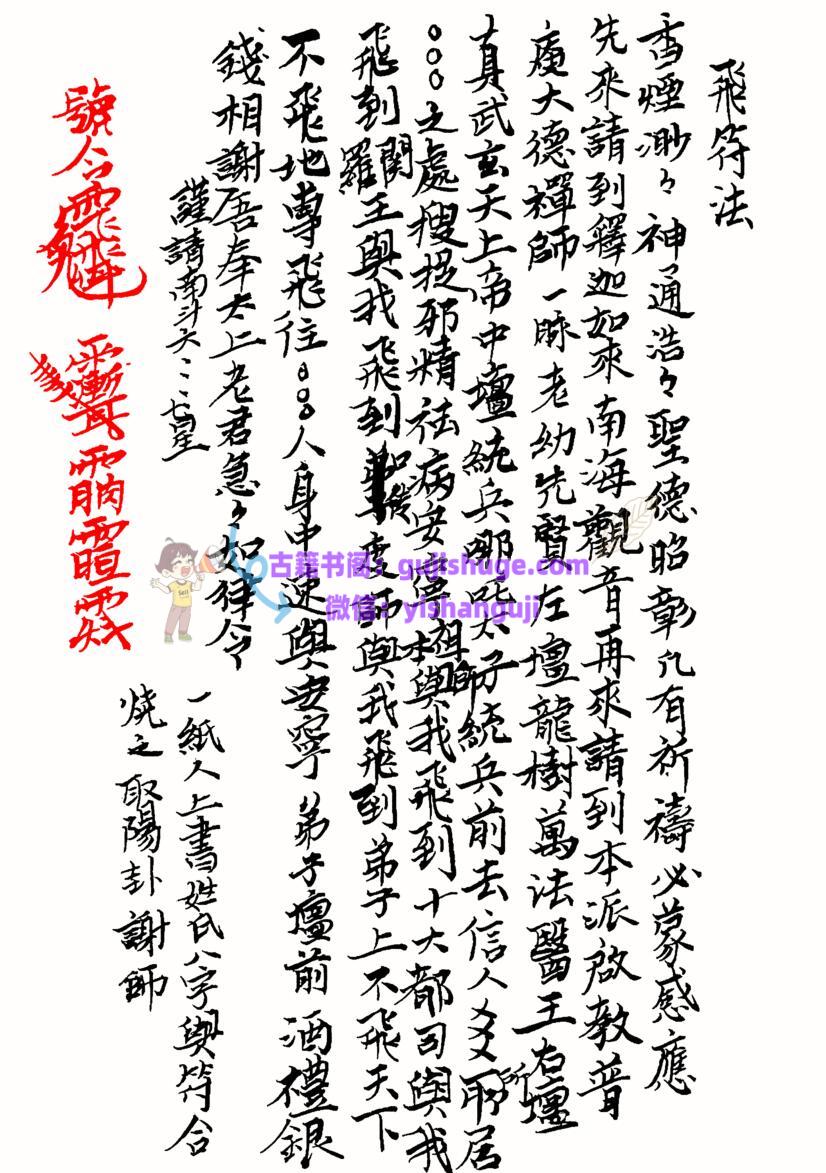 飛符法
香煙渺々神通浩々聖德昭彰凡有祈禱必蒙感應
先來請到釋迦如來南海觀音再來請到本派啟教普
庵大德禪師一脉老幼先賢左壇龍樹萬法醫王右壇
真武玄天上帝中壇統兵哪吒太子統兵前去信人爻爻所居
〇〇〇之處搜捉邪精祛病安康本祖師與我飛到十大都司與我
飛到閞羅王與我飛到和傳度師與我飛到弟子上不飛天下
不飛地專飛往〇〇〇人身中速與安寧弟子壇前酒禮銀
錢相謝吾奉太上老君急々如律令
謹請南斗六：：七星
號令
一紙人上書姓氏八字與符合
燒之取陽卦謝師
古籍书阁：gujishuge.com
微信：yishanguji
Sell